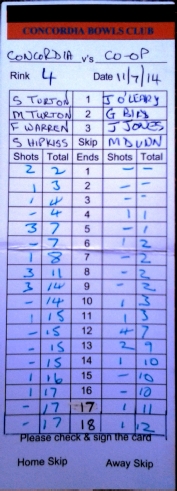 CONCORDIA BOWLS CLUB
CONCORDIA v's CO-OP
Rink 4 Date 11/7/14
S TURTON 1 J O'LEARY
M TURTON 2 G
F WARREN 3 J JONES
S HIPKISS Skip M DUNN
Shots Total Ends Shots Total
2 2 1 - -
1 3 2 - -
1 4 3 - -
- 4 4 1 1
3 7 5 - -
- 7 6 1 2
1 8 7 - 2
3 11 8 - 2
3 14 9 - 2
- 14 10 1 3
1 15 11 1 3
- 15 12 4 7
- 15 13 2 9
- 15 14 1 10
1 16 15 - 10
1 17 16 - 10
- 17 17 1 11
- 17 18 1 12
Please check & sign the card
Home Skip Away Skip